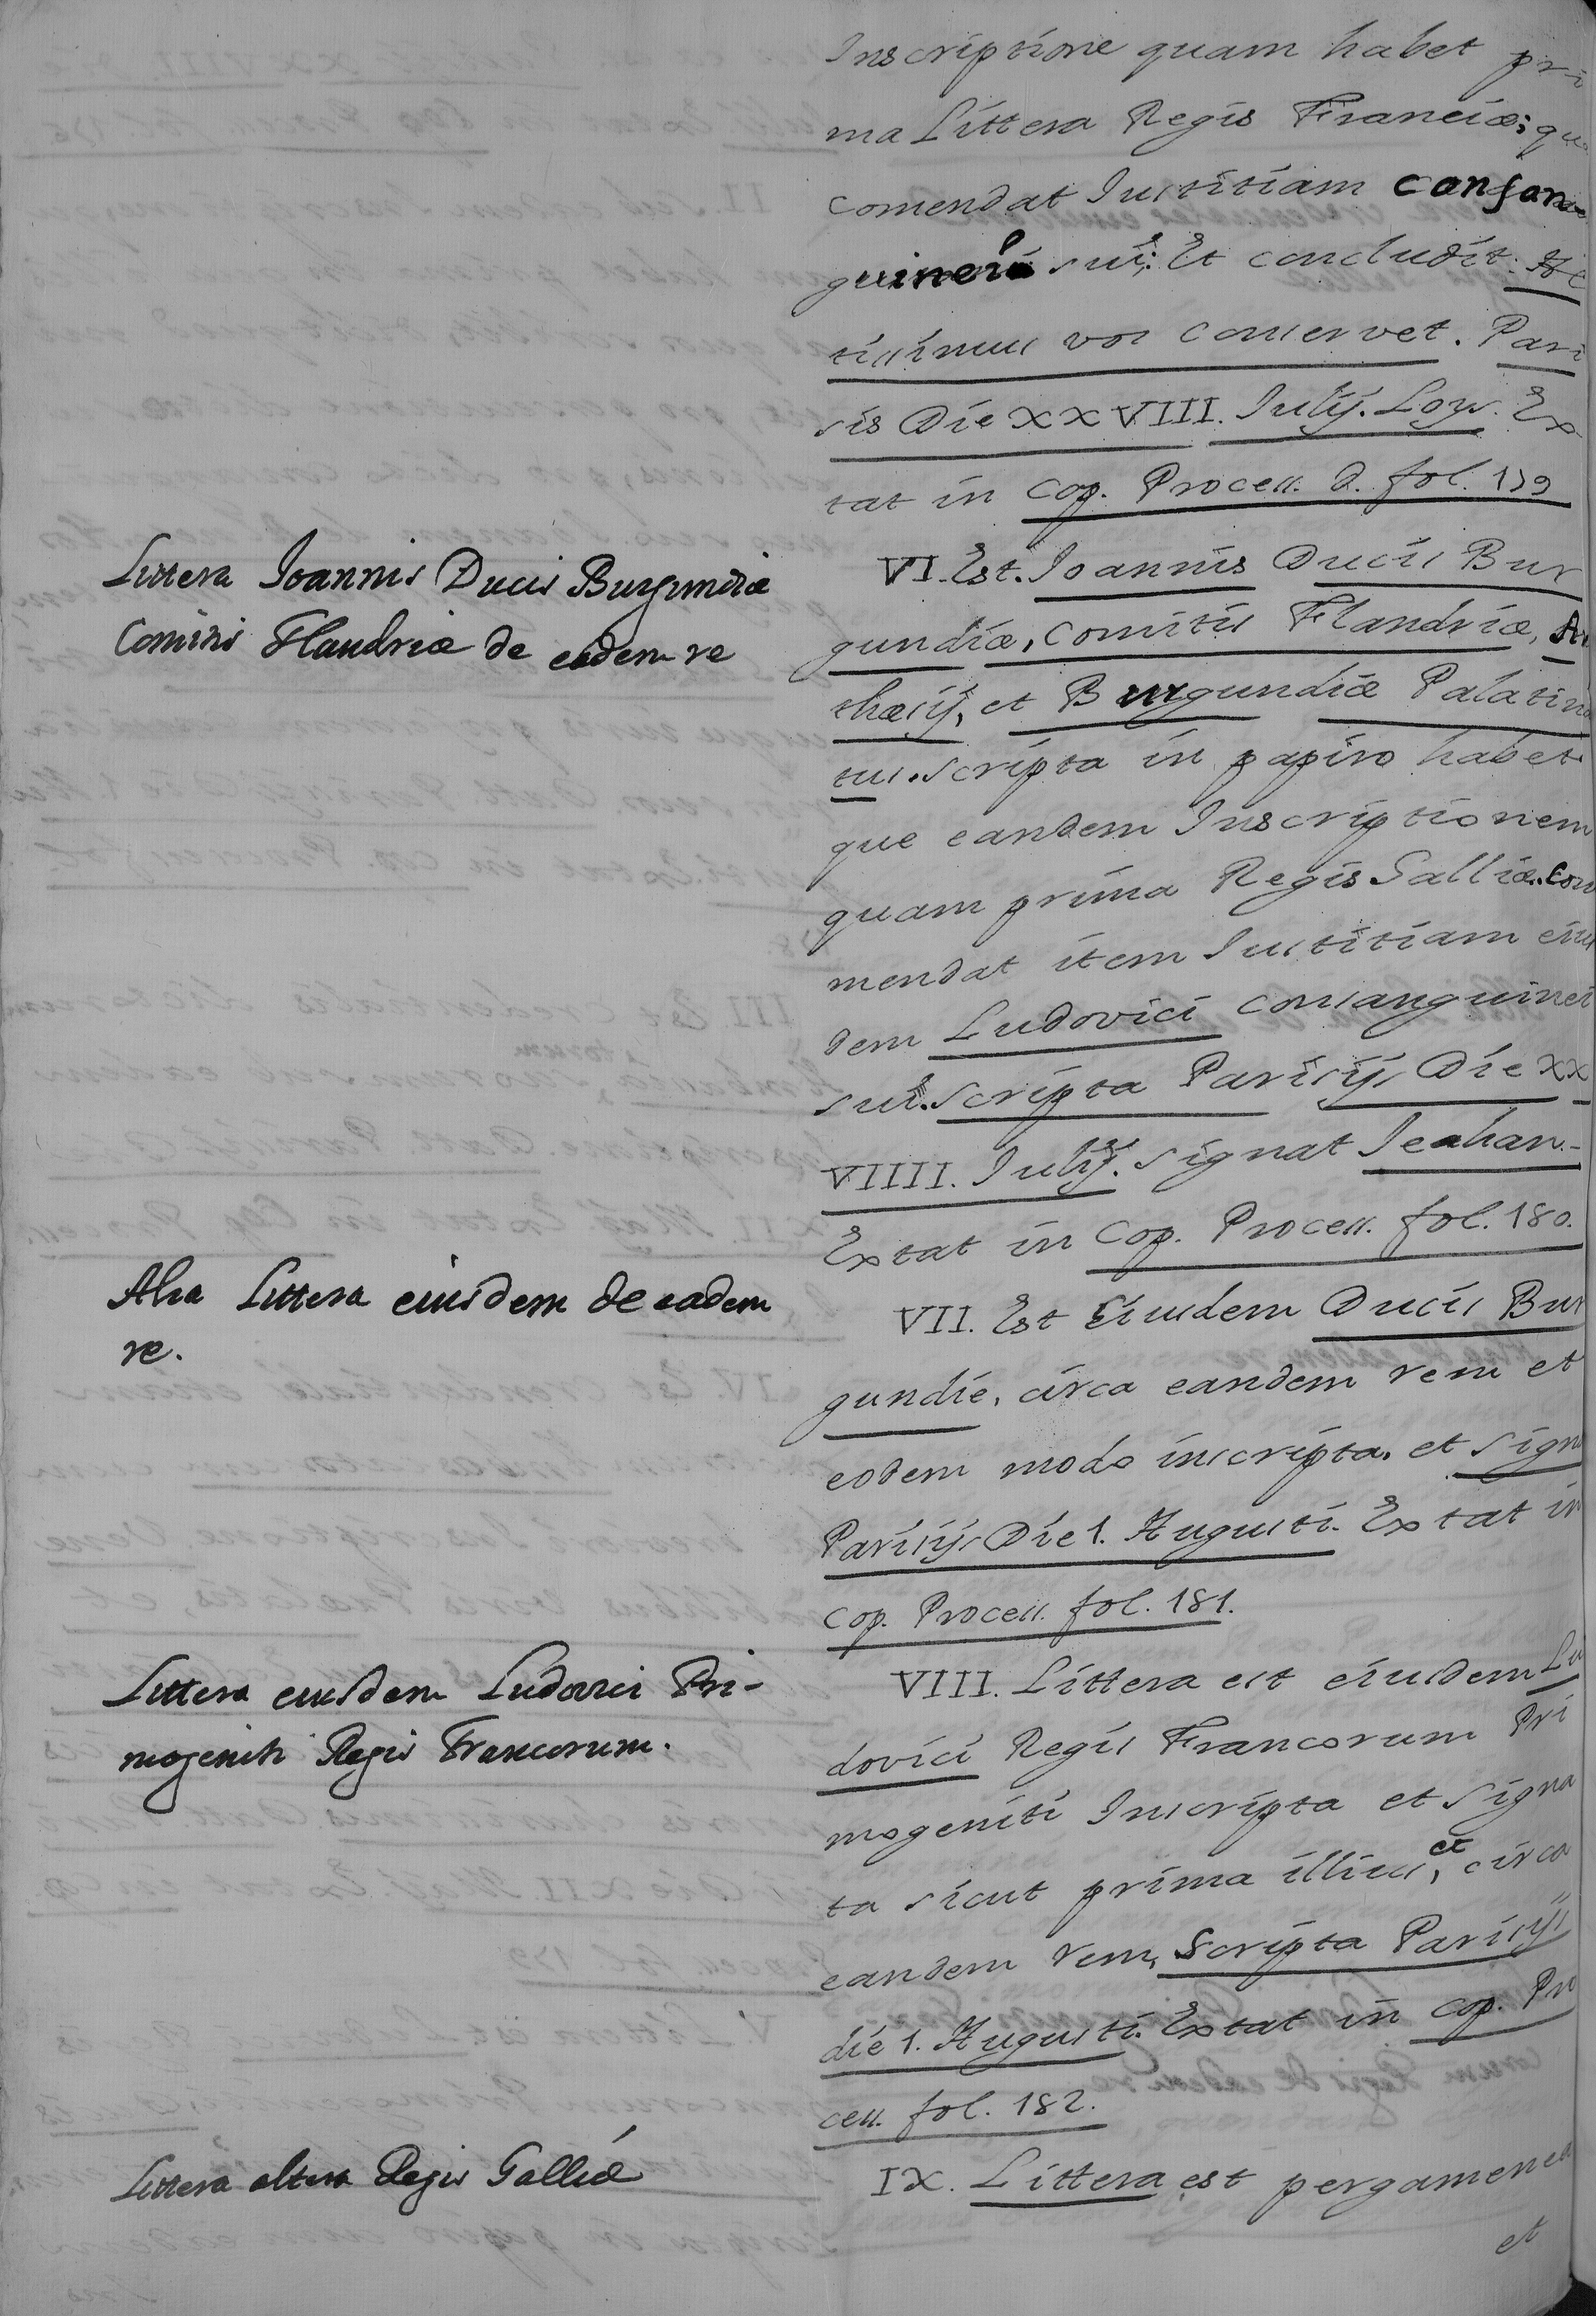 Inscriptione quam habet pri
ma Littera Regis Franciæ; qua
comendat Iustitiam consan
guinei sui; Et concludit:
tissimus vos conservet. Pari
sis Die XXVIII. Iulij. Loys. Ex
tat in Cop. Process. 2. fol. 179
Littera Joannis Ducis Burgundiæ
Comitis Flandriæ de eadem re
VI. Est. Joannis Ducis Bur
gundiæ, Comitis Flandriæ, Ar
thæsij, et Burgundiæ Palatin
tus. Scripta in papiro habet
que eandem Inscriptionem
quam prima Regis Galliæ. Com
mendat item Iustitiam eius
dem Ludovici consanguinei
sui. Scripta Parisijs Die XX
VIIII. Iulij. signat Jeahan.-
Extat in Cop. Process. fol. 180.
Alia Littera eiusdem de eadem
re.
VII. Est Eiusdem Ducis Bur
gundie, circa eandem rem et
eodem modo inscripta. et sign
Parisijs Die 1. Augusti. Extat in
Cop. Process. fol. 181.
Littera eiusdem Ludovici Pri-
mogeniti Regis Francorum.
VIII. Littera est eiusdem Lu
dovici Regis Francorum Pri
mogeniti Inscripta et signa
ta sicut prima illius, et circa
eandem rem, Scripta Parisijs
die 1. Augusti. Extat in Cop. Pro
cess. fol. 182.
Littera altera Regis Galliæ
IX. Littera est pergamenea
et